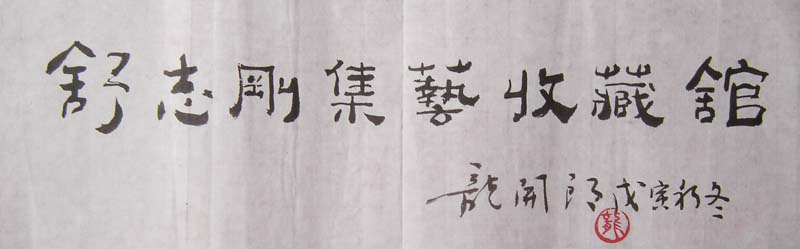 舒志剛集藝收藏舘
龍開朗戊寅初冬
龍